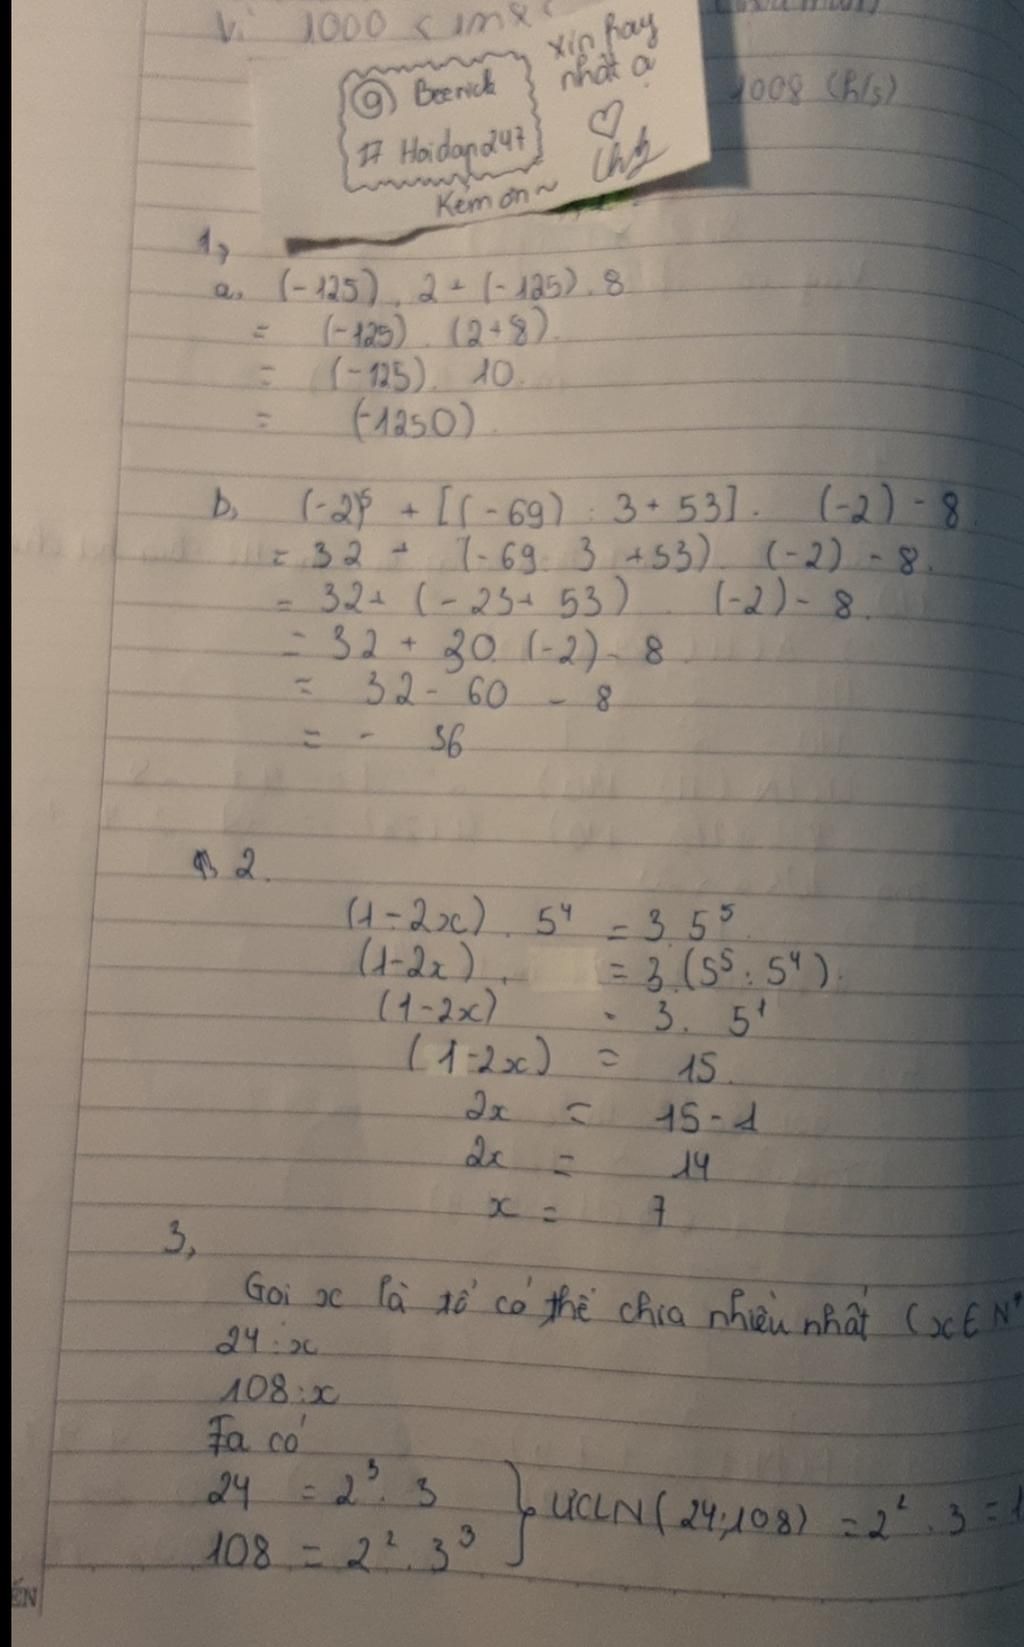 Vì 1000 <
1008 (h/s)
xin hay
nhất ạ
Beerick
Hoidap247
Kẻm ơn~
1,
a, (-125) . 2 + (-125) . 8
= (-125) . (2+8)
= (-125) . 10
= (-1250)
b, (-2)⁵ + [(-69) : 3 + 53] . (-2) - 8
= 32 + (-69 : 3 + 53) . (-2) - 8.
= 32 + (-23 + 53) . (-2) - 8.
= 32 + 30 . (-2) - 8
= 32 - 60 - 8
= - 36
2.
(1-2x) . 5⁴ = 3 . 5⁵
(1-2x) . = 3 . (5⁵ : 5⁴) .
(1-2x) = 3 . 5¹
(1-2x) = 15
2x = 15 - 1
2x = 14
x = 7
3,
Goi x là tổ có thể chia nhiều nhất (x∈N*
24 : x
108 : x
Ta có
24 = 2³ . 3
108 = 2² . 3³
} ƯCLN(24;108) = 2² . 3 = 1